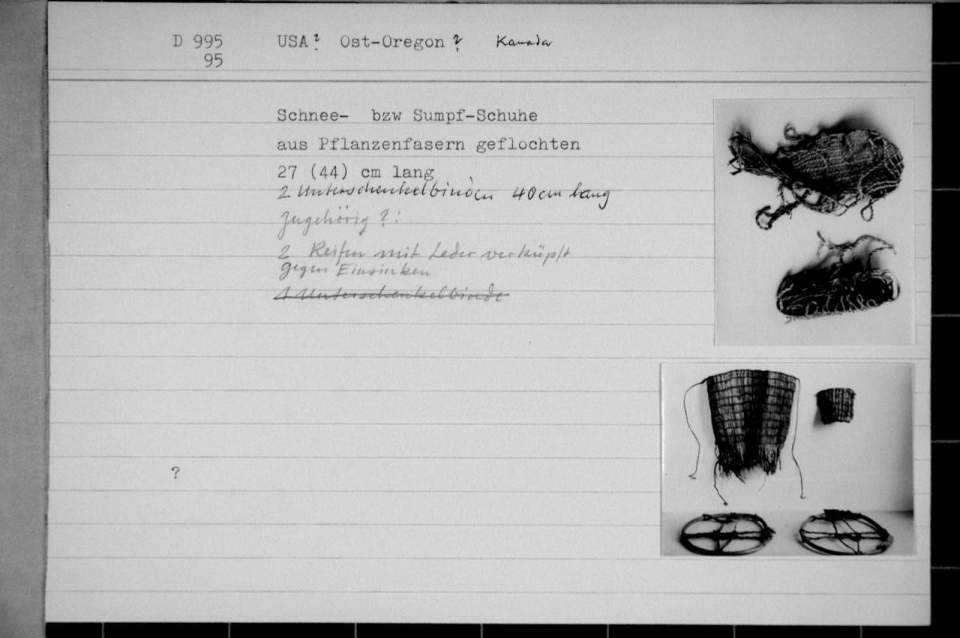 D 995 USA? Ost-Oregon? Kanada
95
Schnee- bzw Sumpf-Schuhe
aus Pflanzenfasern geflochten
27 (44) cm lang
2 Unterschenkelbinden 40 cm lang
Zugehörig?:
2 Reifen mit Leder verknüpft
gegen Einsinken
1 Unterschenkelbinde
?